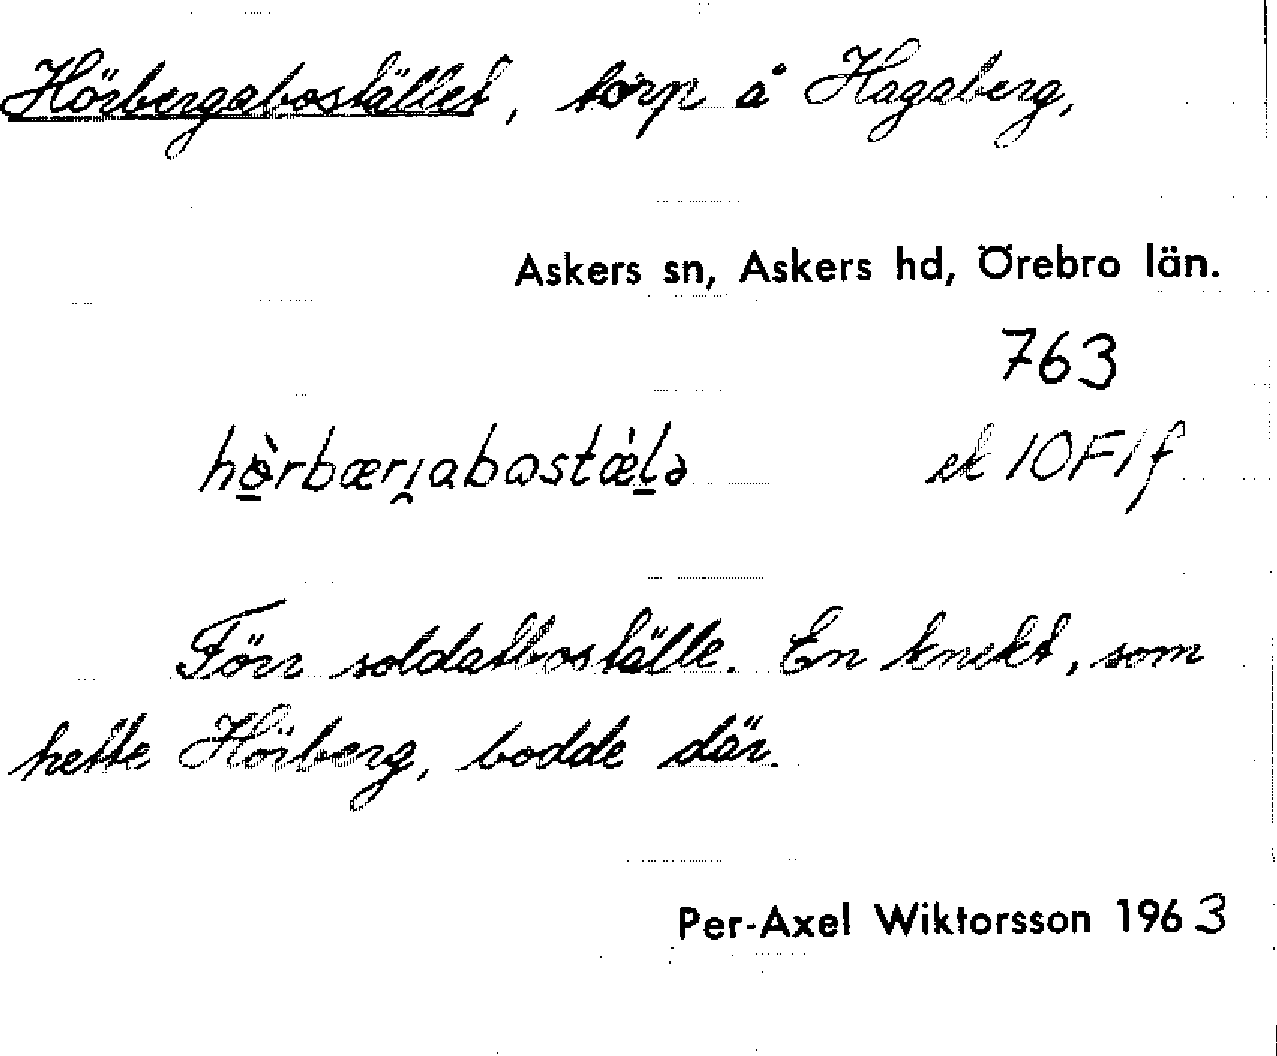 Hörbergabostället, torp å Hagaberg,
Askers sn, Askers hd, Örebro län.
763
hö̀rbærjabostǽlə ek 10F1f
Förr soldatboställe. En knekt, som
hette Hörberg, bodde där.
Per-Axel Wiktorsson 1963